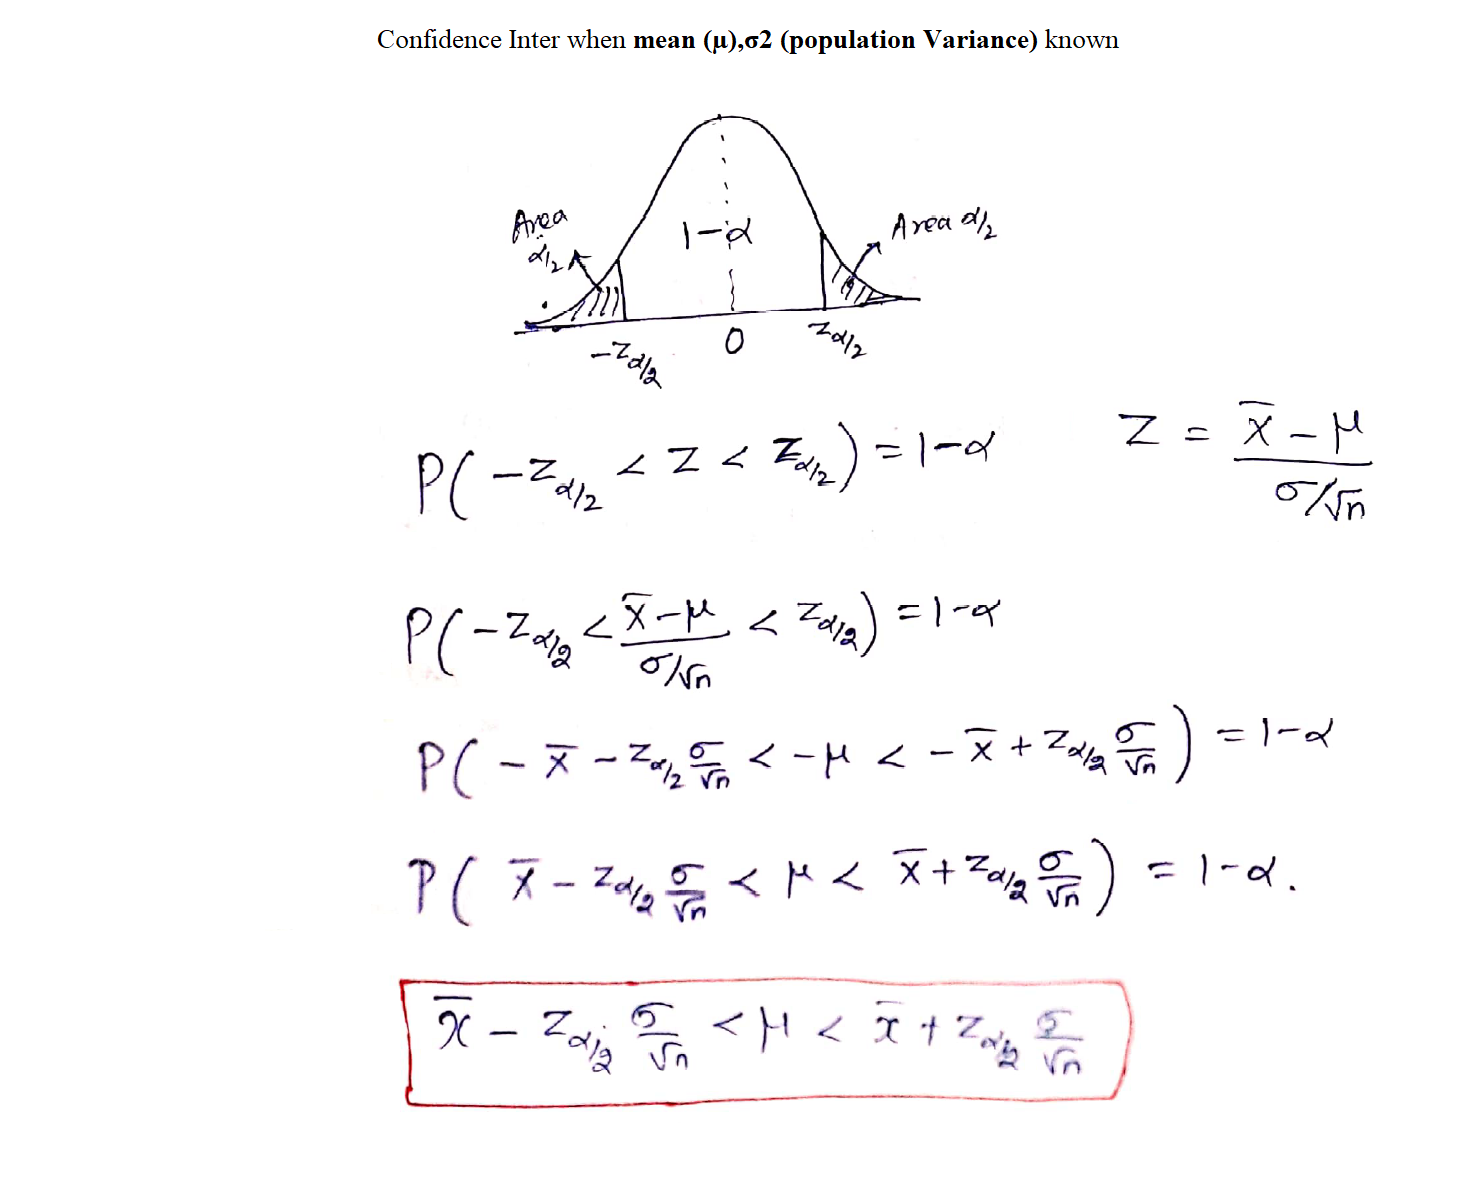 Confidence Inter when mean (μ),σ2 (population Variance) known
Area α/2
1-α
Area α/2
-Zα/2
0
Zα/2
P( -Zα/2 < Z < Zα/2 ) = 1-α
Z = (x̄ - μ) / (σ/√n)
P( -Zα/2 < (x̄-μ) / (σ/√n) < Zα/2 ) = 1-α
P( - x̄ - Zα/2 σ/√n < -μ < - x̄ + Zα/2 σ/√n ) = 1-α
P( x̄ - Zα/2 σ/√n < μ < x̄ + Zα/2 σ/√n ) = 1-α.
x̄ - Zα/2 σ/√n < μ < x̄ + Zα/2 σ/√n